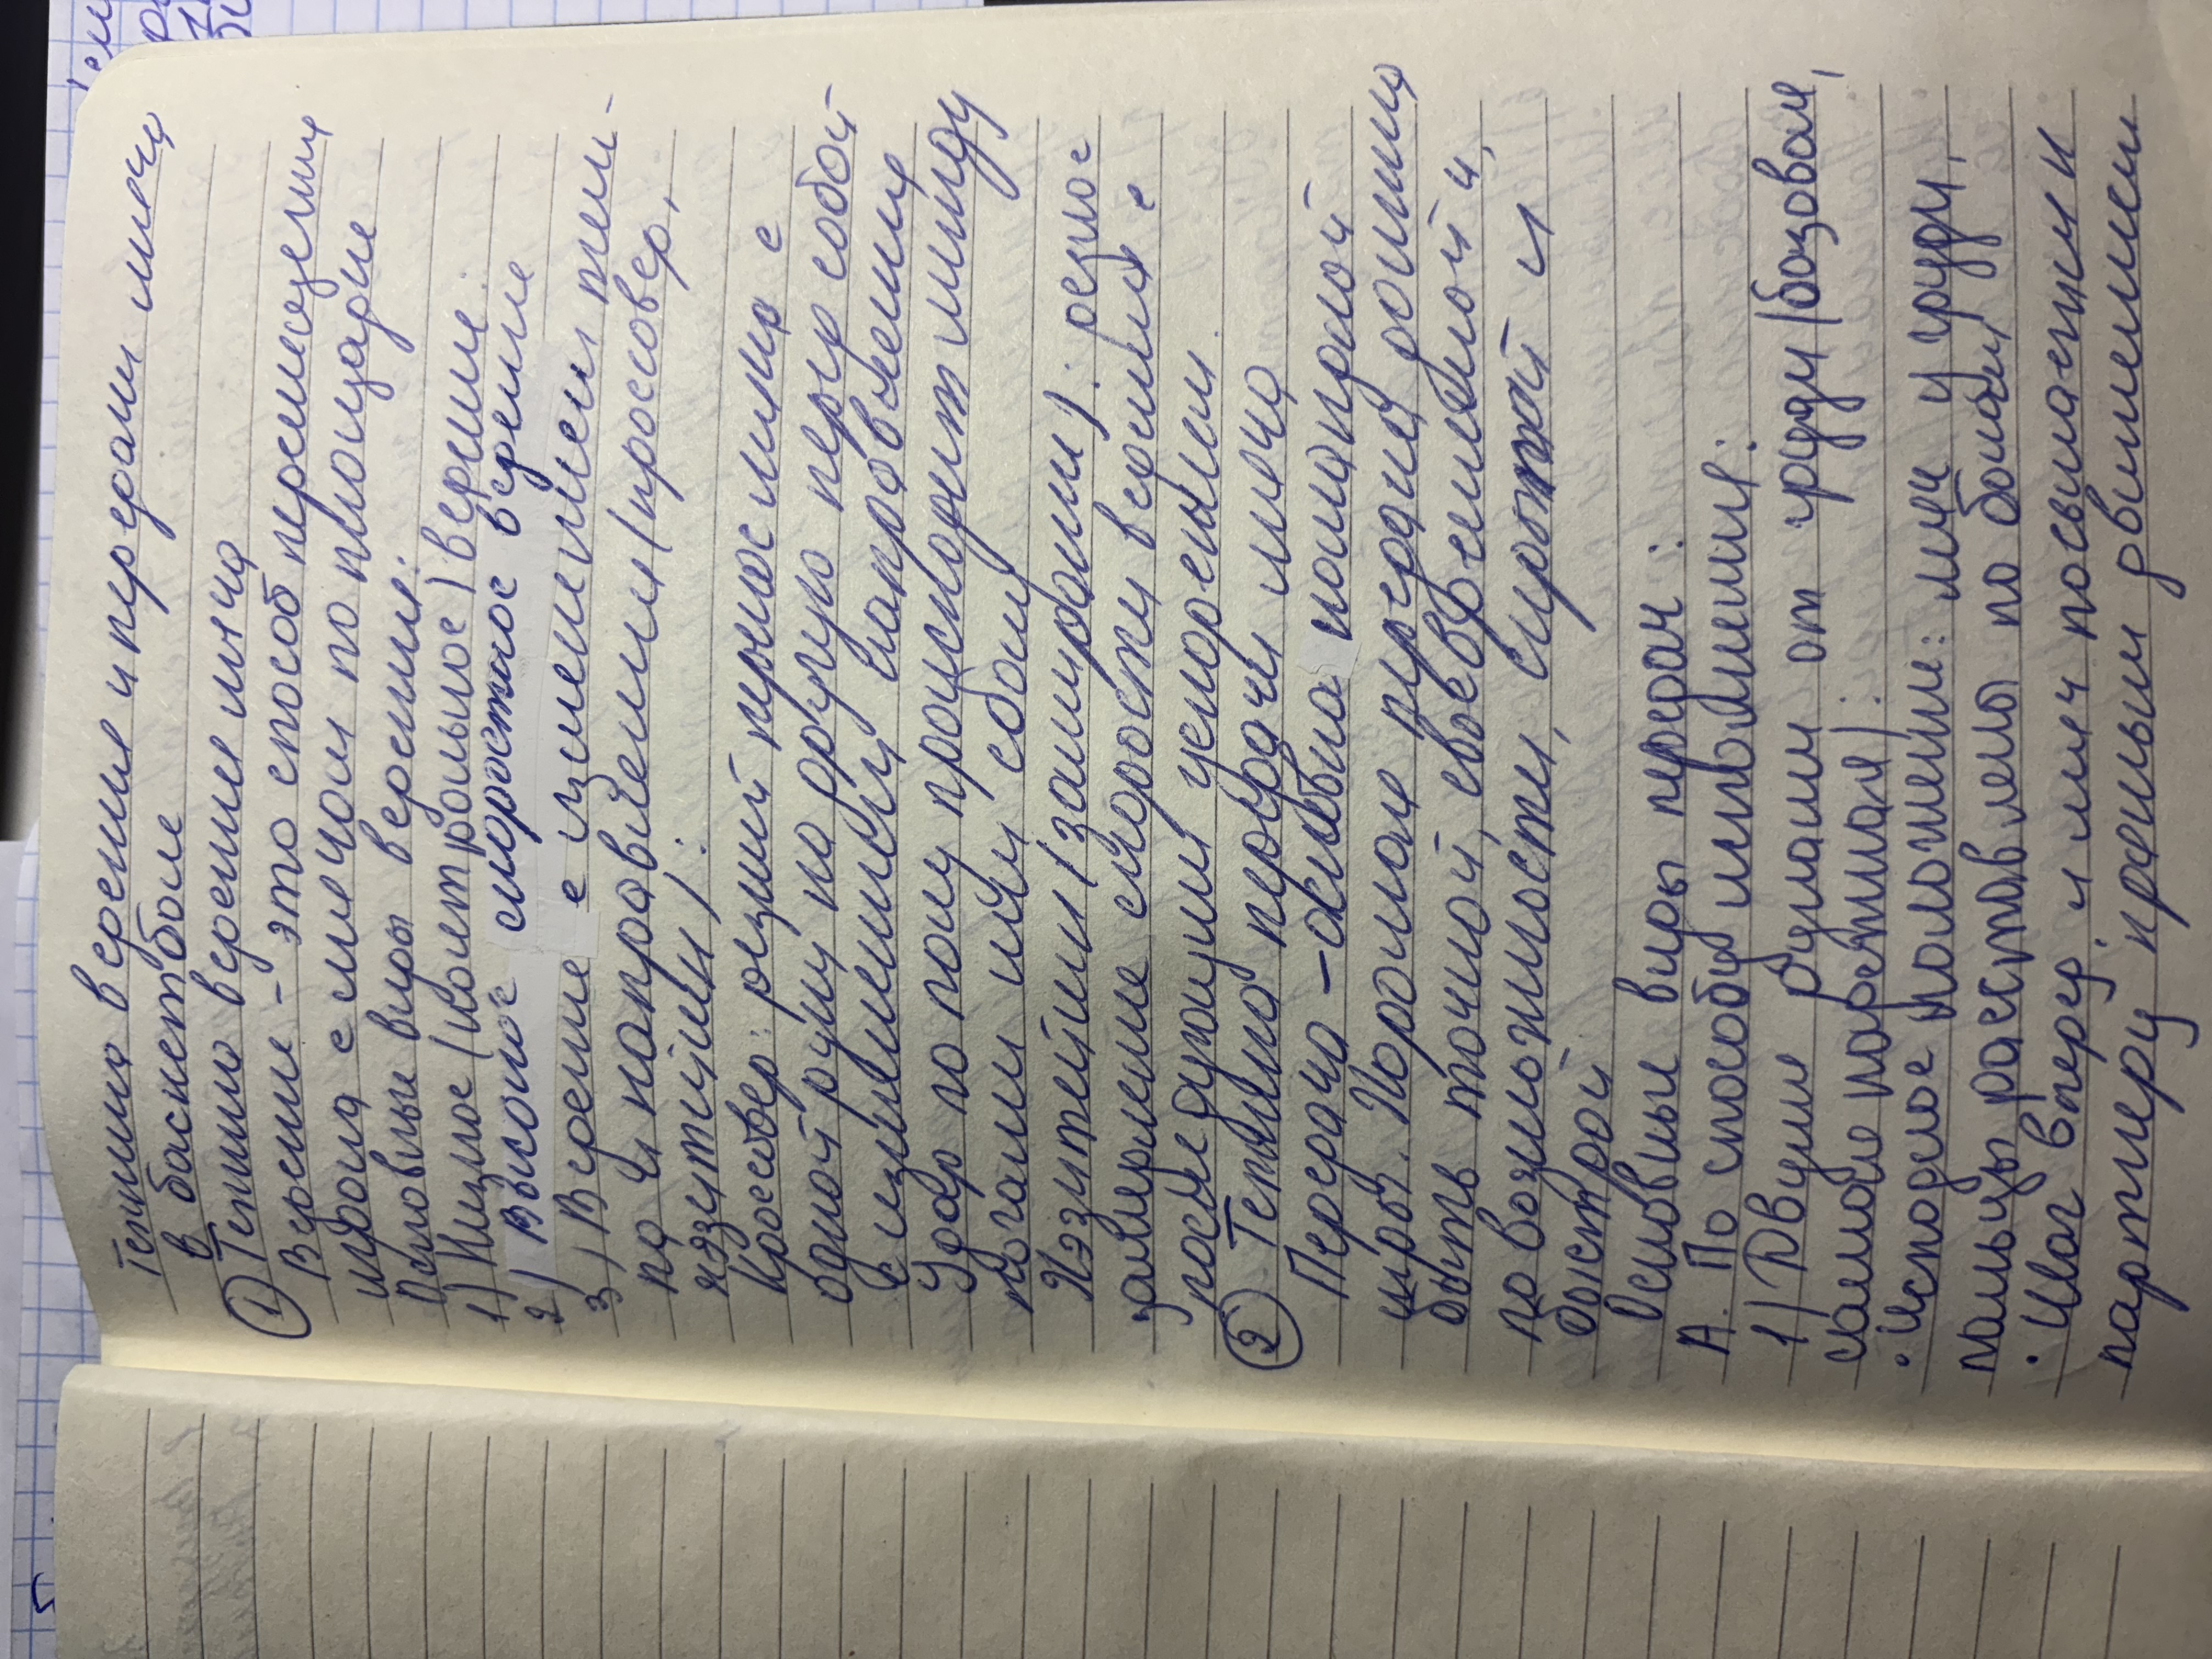 Техника ведения и передачи мяча
в баскетболе
① Техника ведения мяча
Ведение - это способ перемещения
игрока с мячом по площадке
Основные виды ведения:
1) Низкое (контрольное) ведение:
2) Высокое скоростное ведение
3) Ведение с изменением тем-
па и направления (кроссовер,
хезитейшн):
Кроссовер: резкий перенос мяча с
одной руки на другую перед собой
с изменением направления
Удар по полу происходит между
ногами или сбоку
Хэзитейшн (замирание): резкое
замирение скорости ведения с
последующим ускорением
② Техника передачи мяча
Передача - основа командной
игры. Хорошая передача должна
быть точной, своевременной и,
по возможности, скрытой и
быстрой
Основные виды передач:
А. По способу выполнения:
1) Двумя руками от груди (базовая,
самая надежная):
· Исходное положение: мяч у груди,
пальцы расставлены по бокам,
· Шаг вперед и мяч посылается
партнеру прямым движением